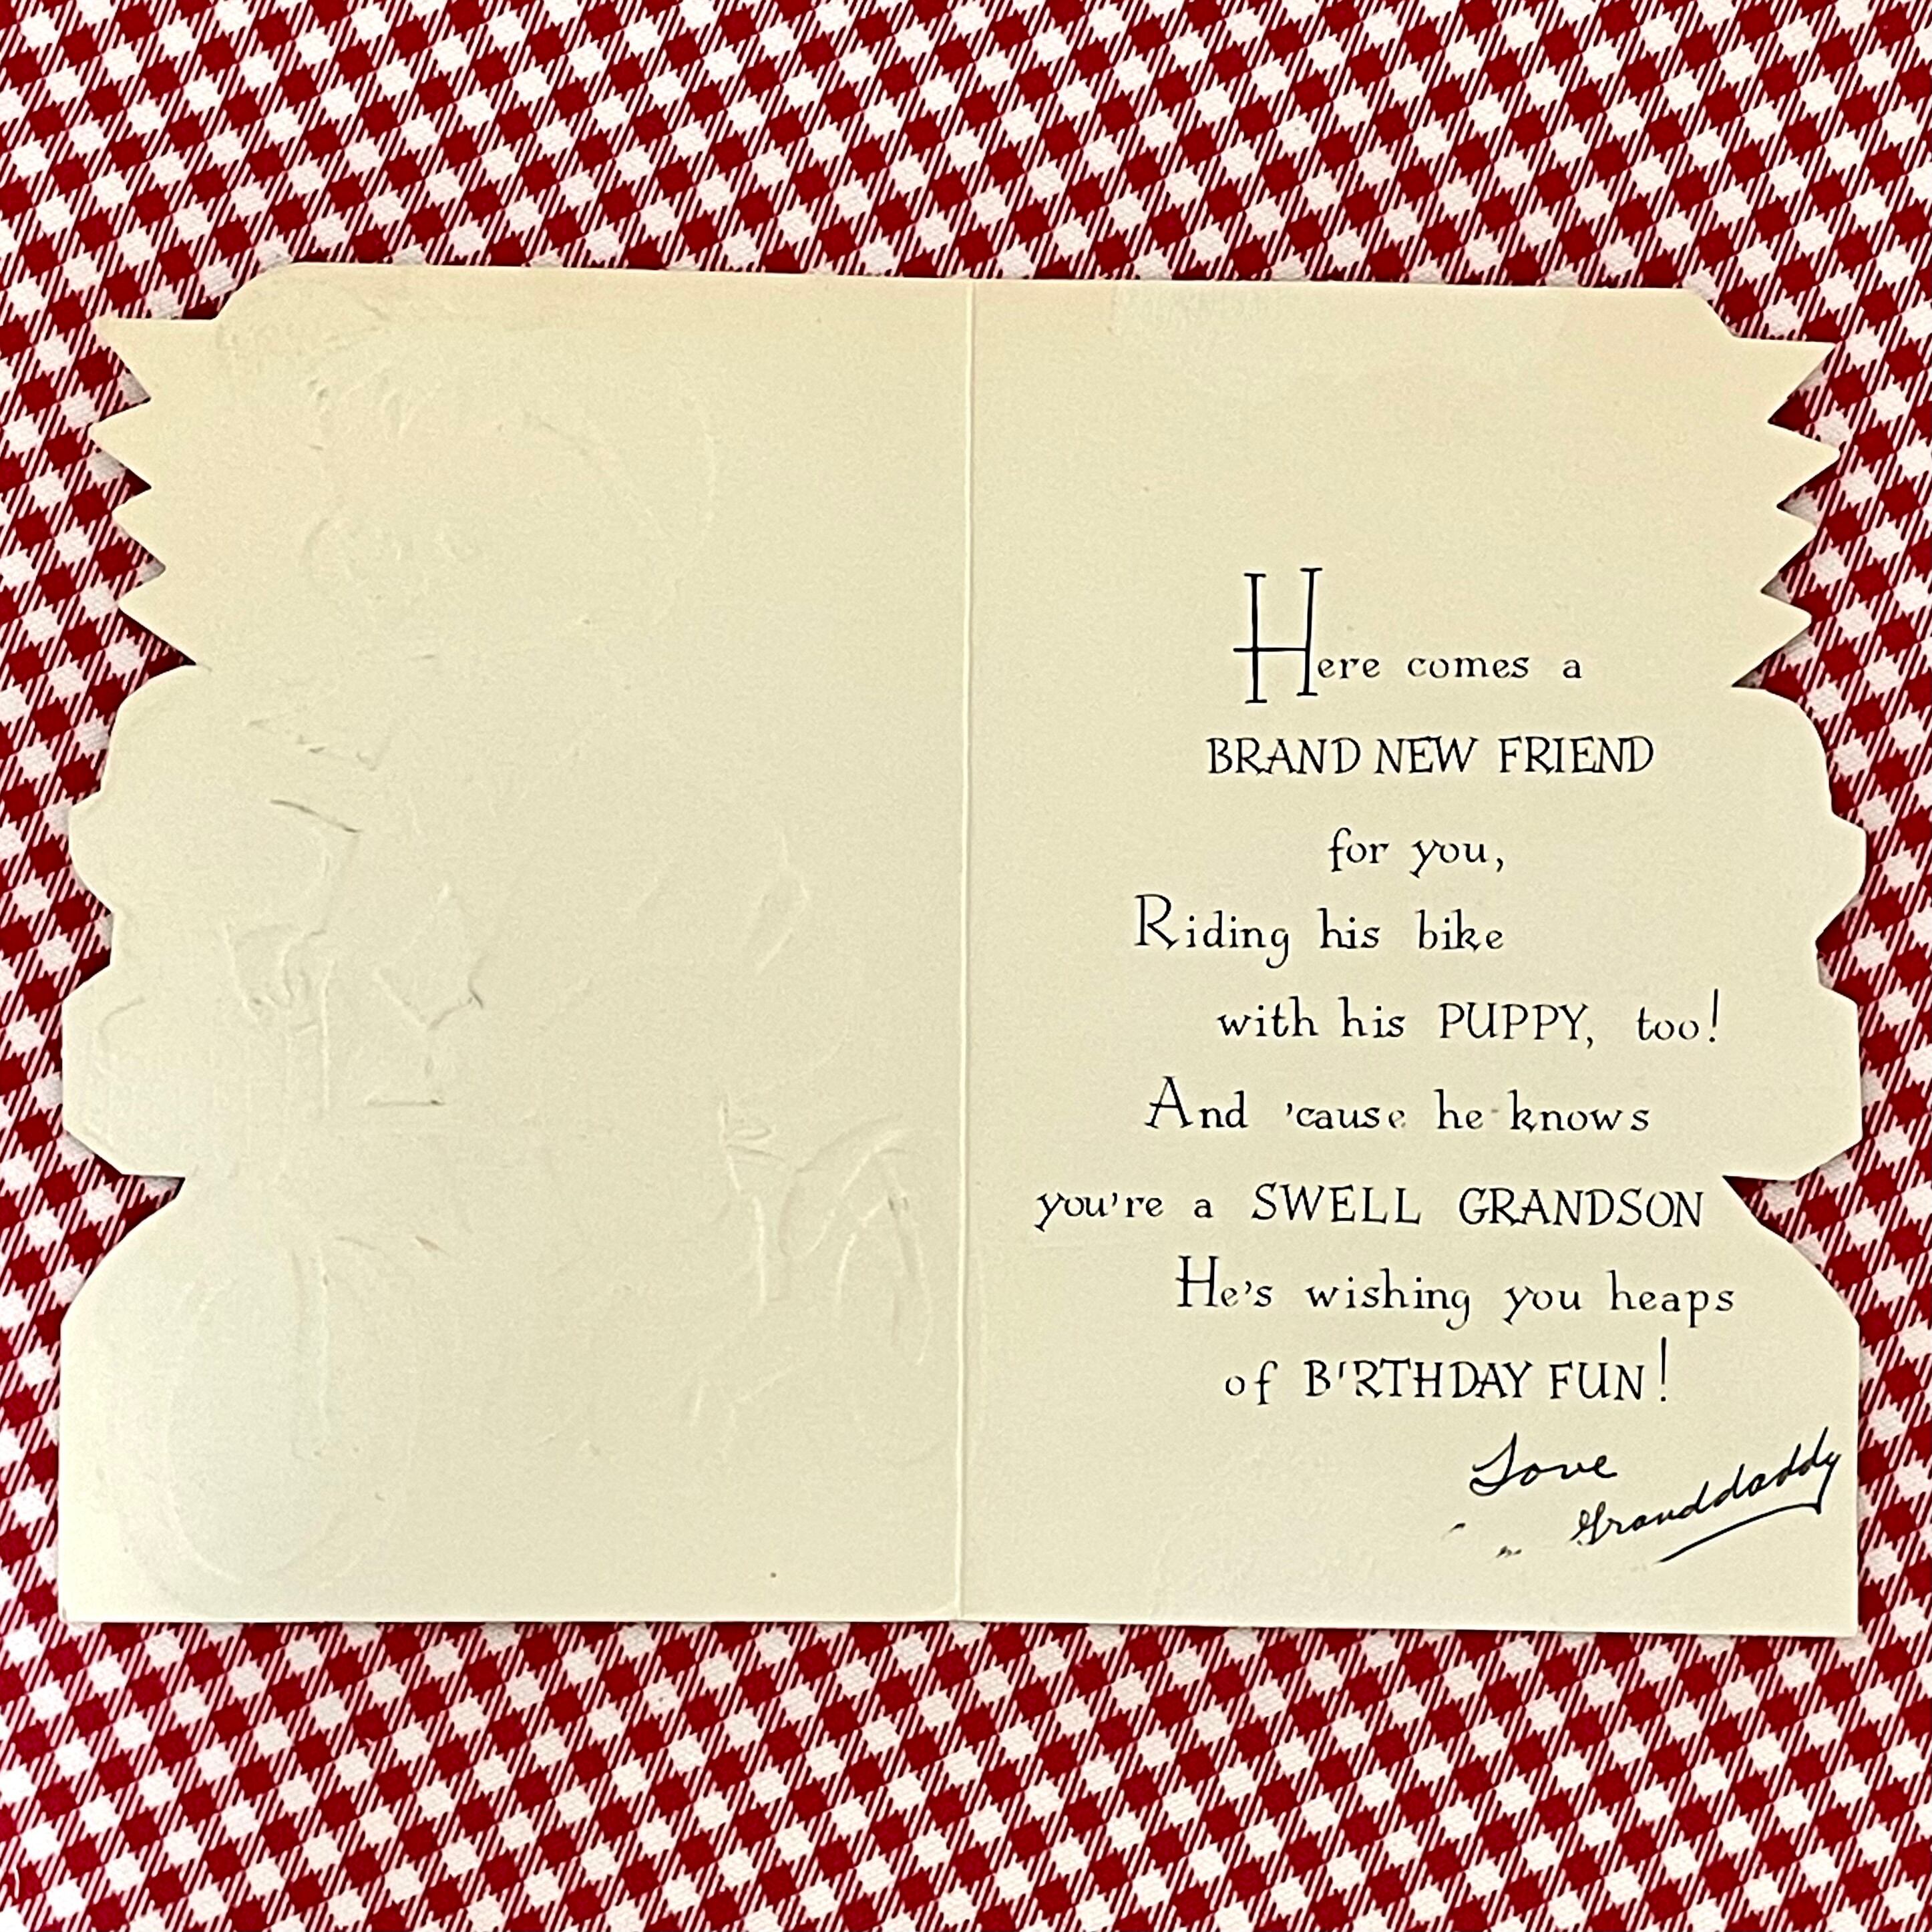 Here comes a
BRAND NEW FRIEND
for you,
Riding his bike
with his PUPPY, too!
And 'cause he knows
you're a SWELL GRANDSON
He's wishing you heaps
of BIRTHDAY FUN!
Love
Granddaddy